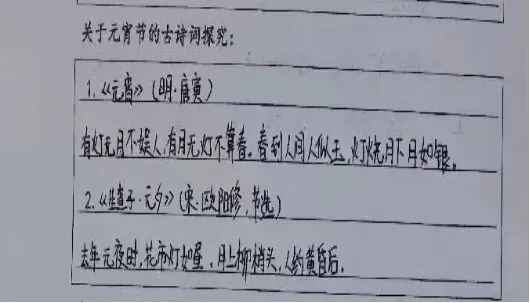 关于元宵节的古诗词探究:
1.《元宵》(明·唐寅)
有灯无月不娱人,有月无灯不算春。春到人间人似玉,灯烧月下月如银。
2.《生查子·元夕》(宋·欧阳修,节选)
去年元夜时,花市灯如昼。月上柳梢头,人约黄昏后。